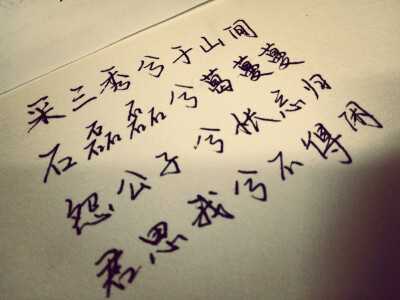 采三秀兮于山间
石磊磊兮葛蔓蔓
怨公子兮怅忘归
君思我兮不得闲